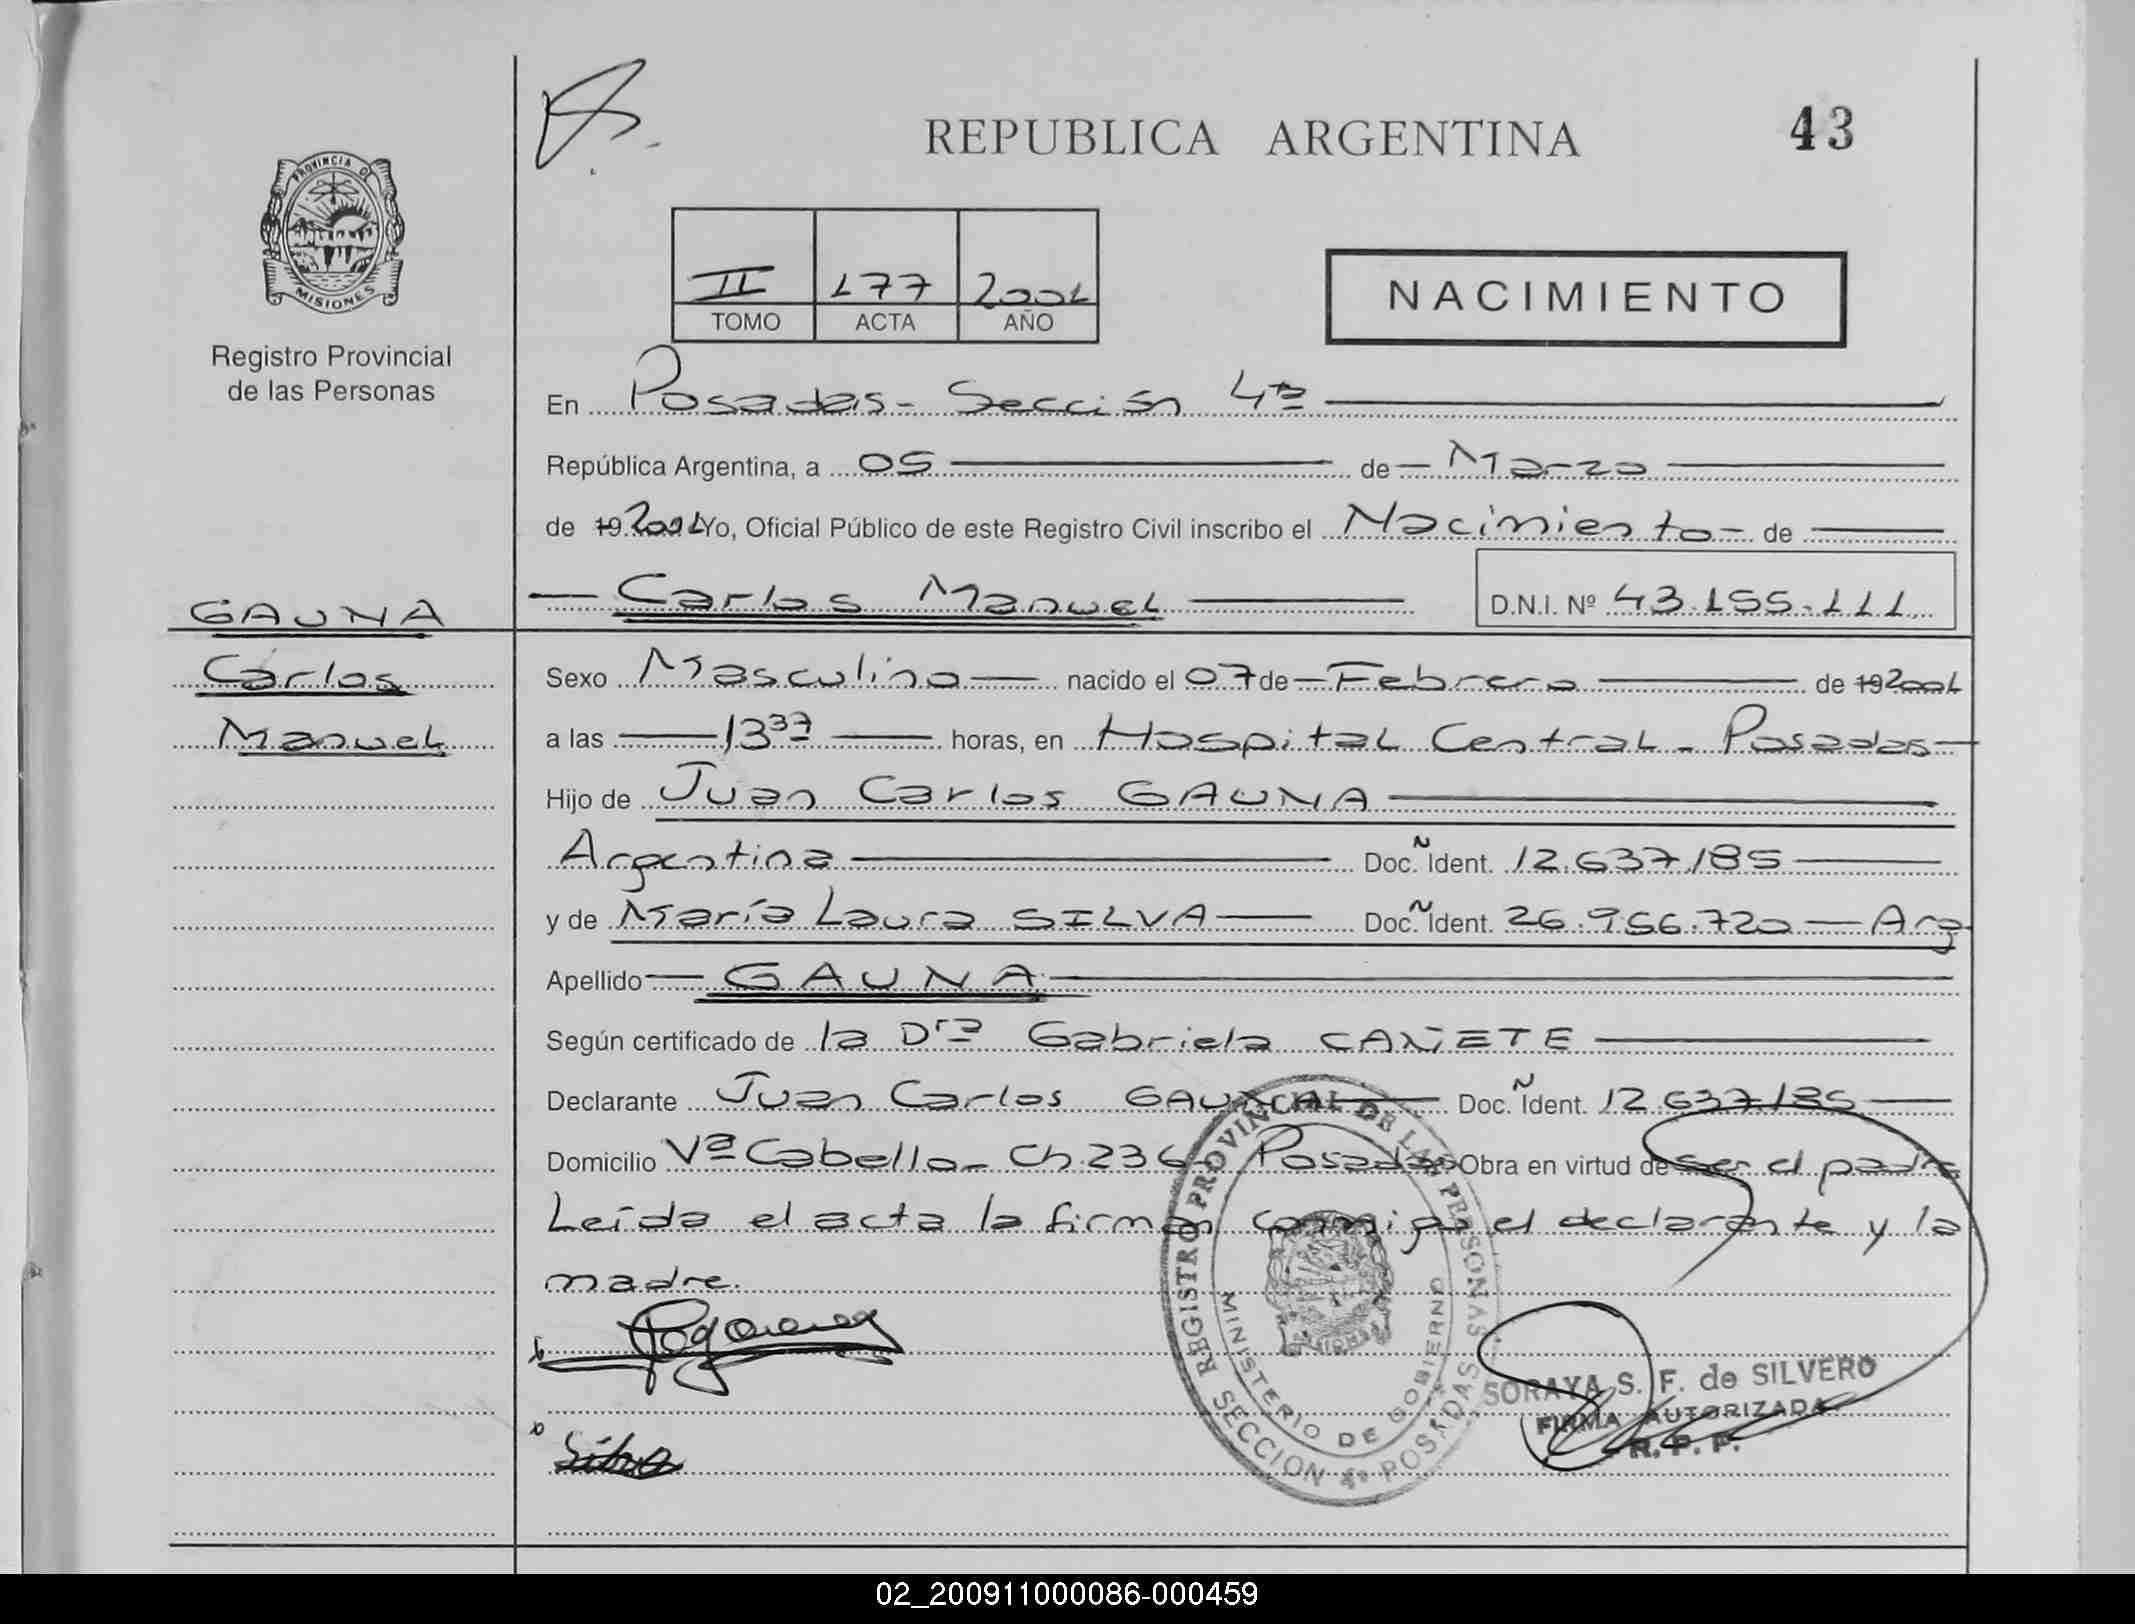 REPUBLICA ARGENTINA
43
PROVINCIA DE
MISIONES
Registro Provincial
de las Personas
II 177 2001
TOMO ACTA AÑO
NACIMIENTO
En Posadas - Sección 4ª
República Argentina, a 05 de Marzo
de 19 2001 Yo, Oficial Público de este Registro Civil inscribo el Nacimiento de
Carlos Manuel D.N.I. Nº 43.155.111
GAUNA
Carlos
Manuel
Sexo Masculino nacido el 07 de Febrero de 19 2001
a las 13 37 horas, en Hospital Central - Posadas
Hijo de Juan Carlos GAUNA
Argentina Doc. Ident. 12.637.185
y de María Laura SILVA Doc. Ident. 26.956.720 - Arg
Apellido GAUNA
Según certificado de la Drª Gabriela CAÑETE
Declarante Juan Carlos GAUNA Doc. Ident. 12.637.185
Domicilio Vª Cabello - Ch 236 - Posadas Obra en virtud de ser el padre
Leída el acta la firman conmigo el declarante y la
madre.
Silva
REGISTRO PROVINCIAL DE LAS PERSONAS
MINISTERIO DE GOBIERNO
SECCION 4ª POSADAS
SORAYA S. F. de SILVERO
FIRMA AUTORIZADA
R. P. P.
02_200911000086-000459